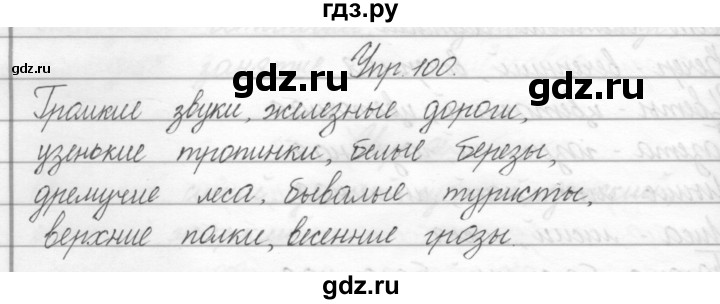 гдз.ру
Упр. 100.
gdz.ru gdz.ru gdz.ru
Громкие звуки, железные дороги,
узенькие тропинки, белые березы,
дремучие леса, бывалые туристы,
верхние полки, весенние грозы.
gdz.ru gdz.ru